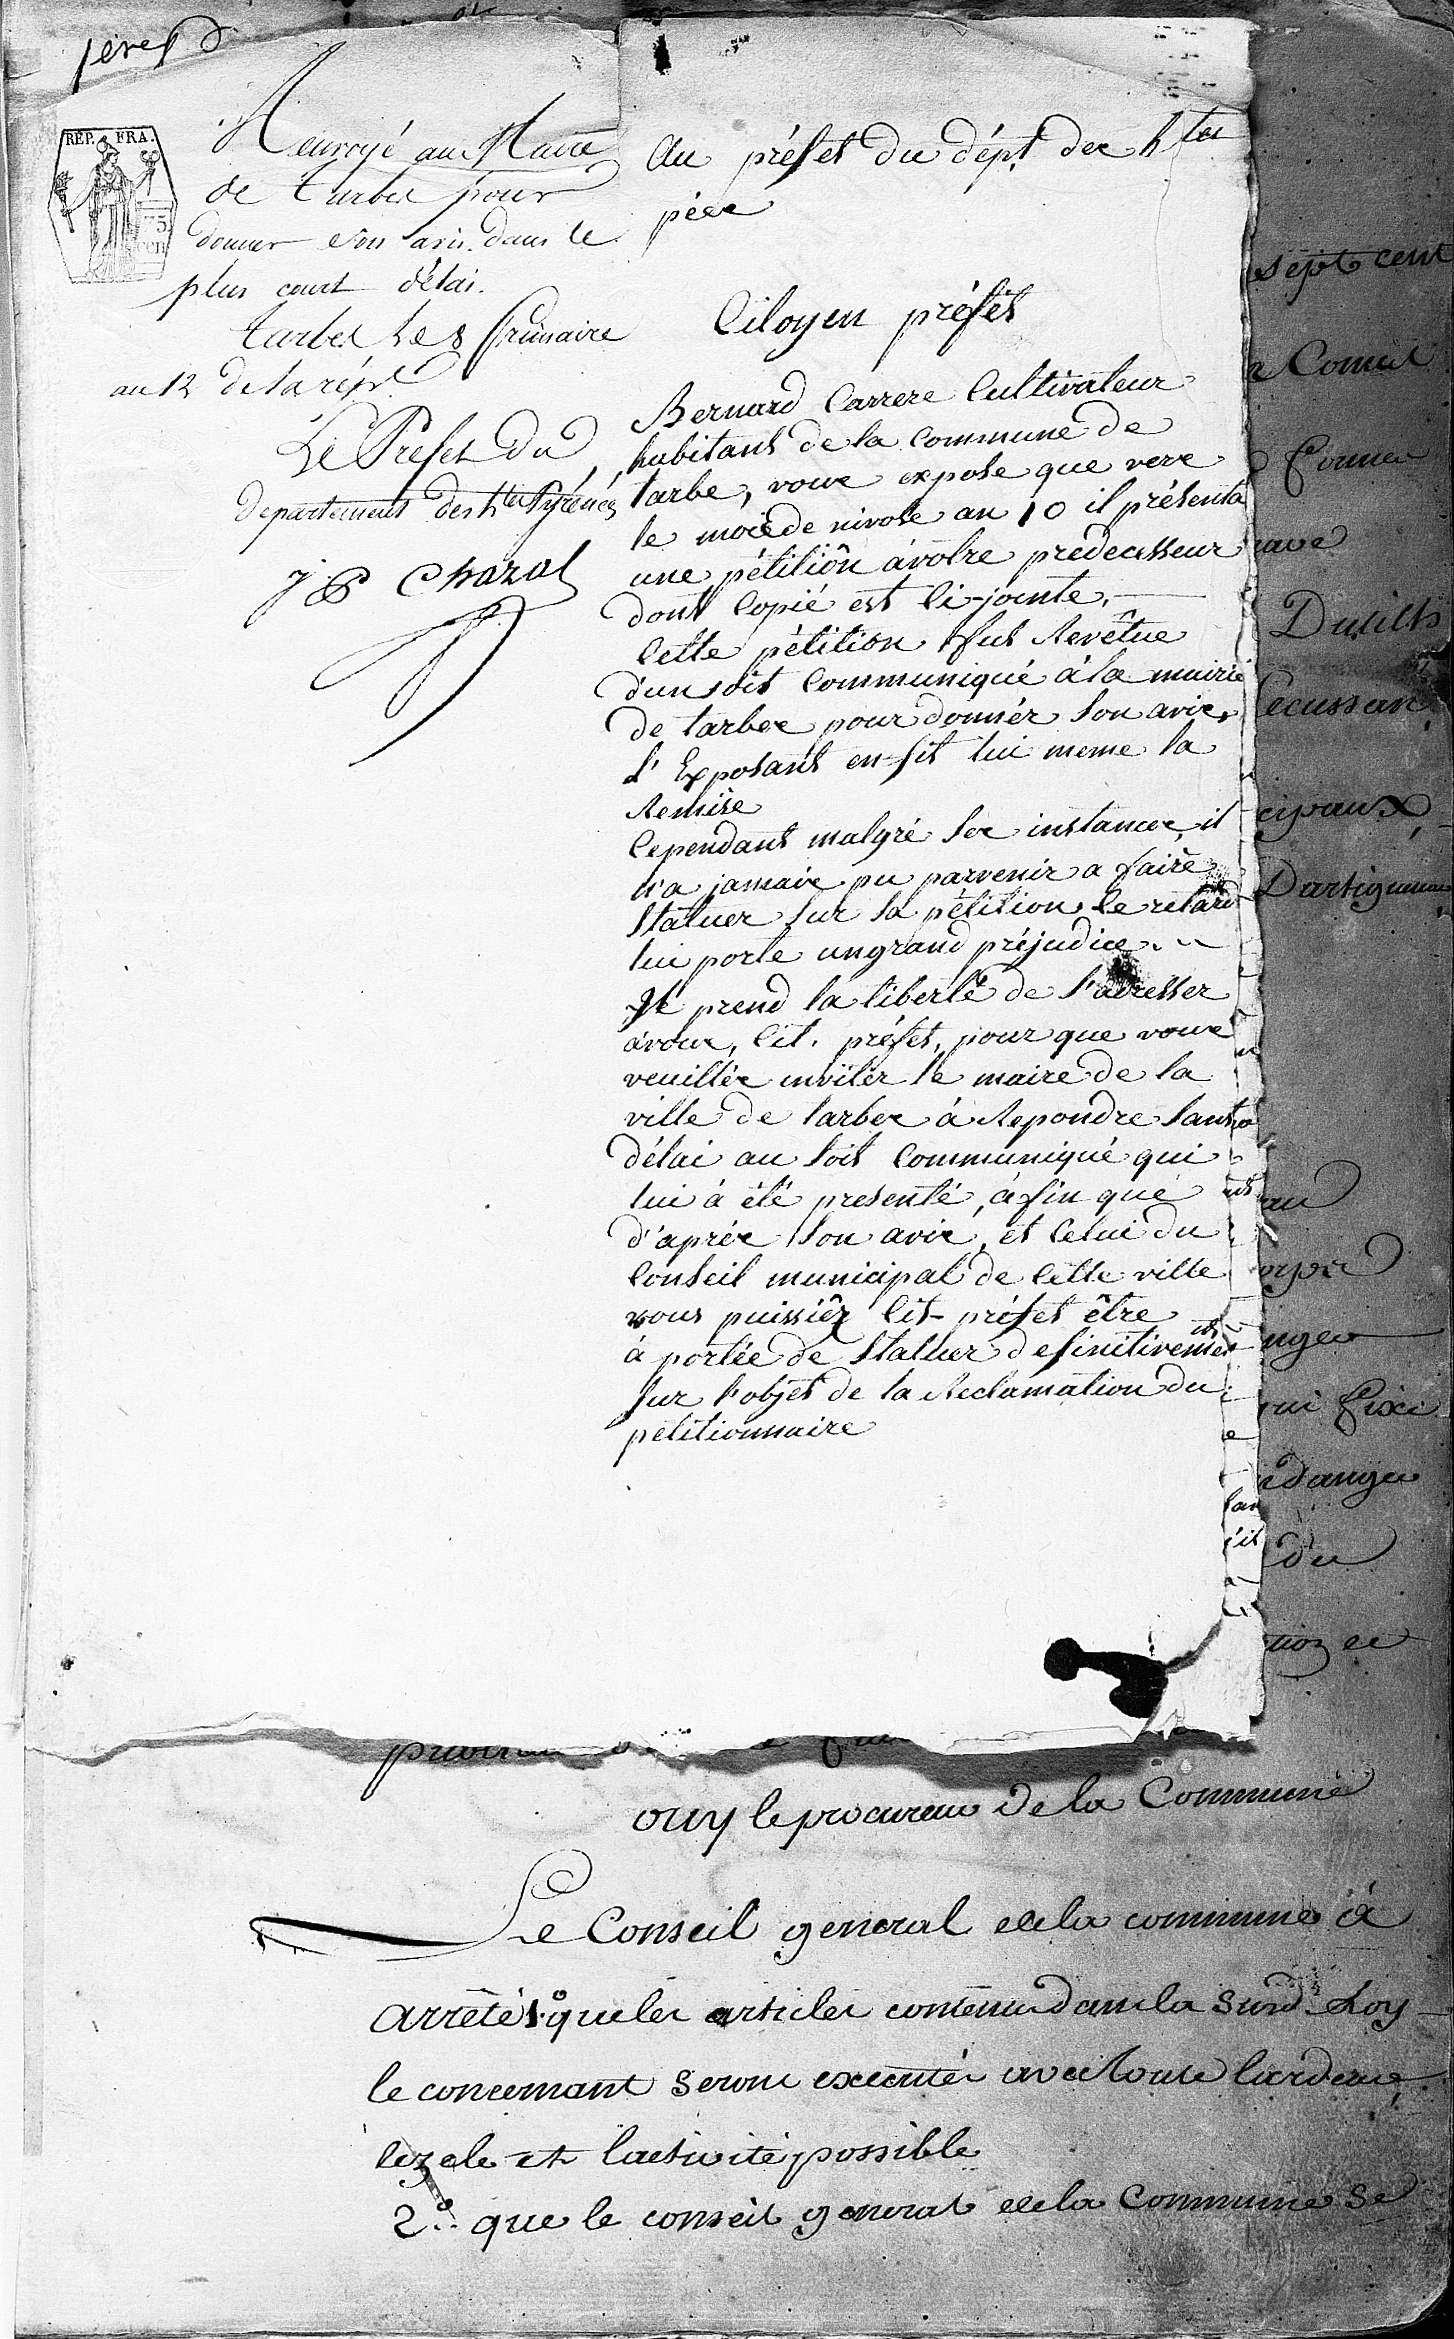 REP. FRA.
75
CEN
Renvoyé au Maire
de Tarbes pour
donner son avis dans le
plus court délai.
tarbes le 8 frimaire
an 12 de la rép.
Le Prefet du
departement des h.tes Pyrénées
J P Chazal
Au préfet du dépt. des h.tes
pées
Citoyen préfet
Bernard Carrere Cultivateur
habitant de la Commune de
tarbe, vous expose que vers
le mois de nivose an 10 il présenta
une pétition à votre predecesseur
dont Copié est Ci-jointe.
Cette pétition fut Revêtue
d'un soit Communiqué à la mairie
de tarbes pour donnér son avis,
l'Exposant en fit lui meme la
Remise
Cependant malgré ses instances, il
n'a jamais pu parvenir a faire
Statuer sur sa pétition le retard
lui porte un grand préjudice.
Il prend la liberté de s'adresser
à vous, Cit. préfet, pour que vous
veuillés invitér le maire de la
ville de tarbes à Repondre sans
délai au soit Communiqué qui
lui à été presenté, à fin que
d'après son avis, et Celui du
Conseil municipal de Cette ville
vous puissiéz Cit- préfet être
à portée de Statuer definitivement
sur l'objet de la Reclamation du
petitionnaire
sept cent
Conseil
Dusilts
Lecussan
cipaux
Dartigueune
fixe
du
ouy le procureur de la Commune
Le Conseil general de la commune à
arrêté 1.° que les articles contenu dans la susd. Loy
le concernant seront executés avec toute lardeur
le zele et lactivité possible
2.° que le conseil general de la Commune se